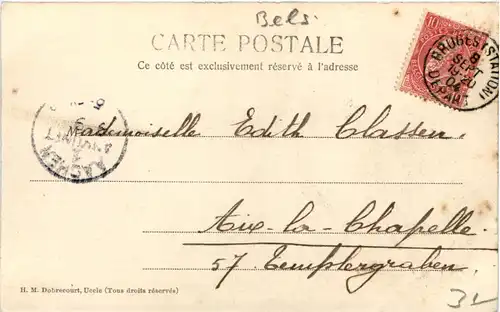 Bels.
CARTE POSTALE
Ce côté est exclusivement réservé à l'adresse
10
BRUGES (STATION)
8
SEPT
1904
DEPART
AACHEN
Mademoiselle Edith Classen.
Aix-la-Chapelle.
57 Templergraben.
H. M. Dobrecourt, Uccle (Tous droits réservés)